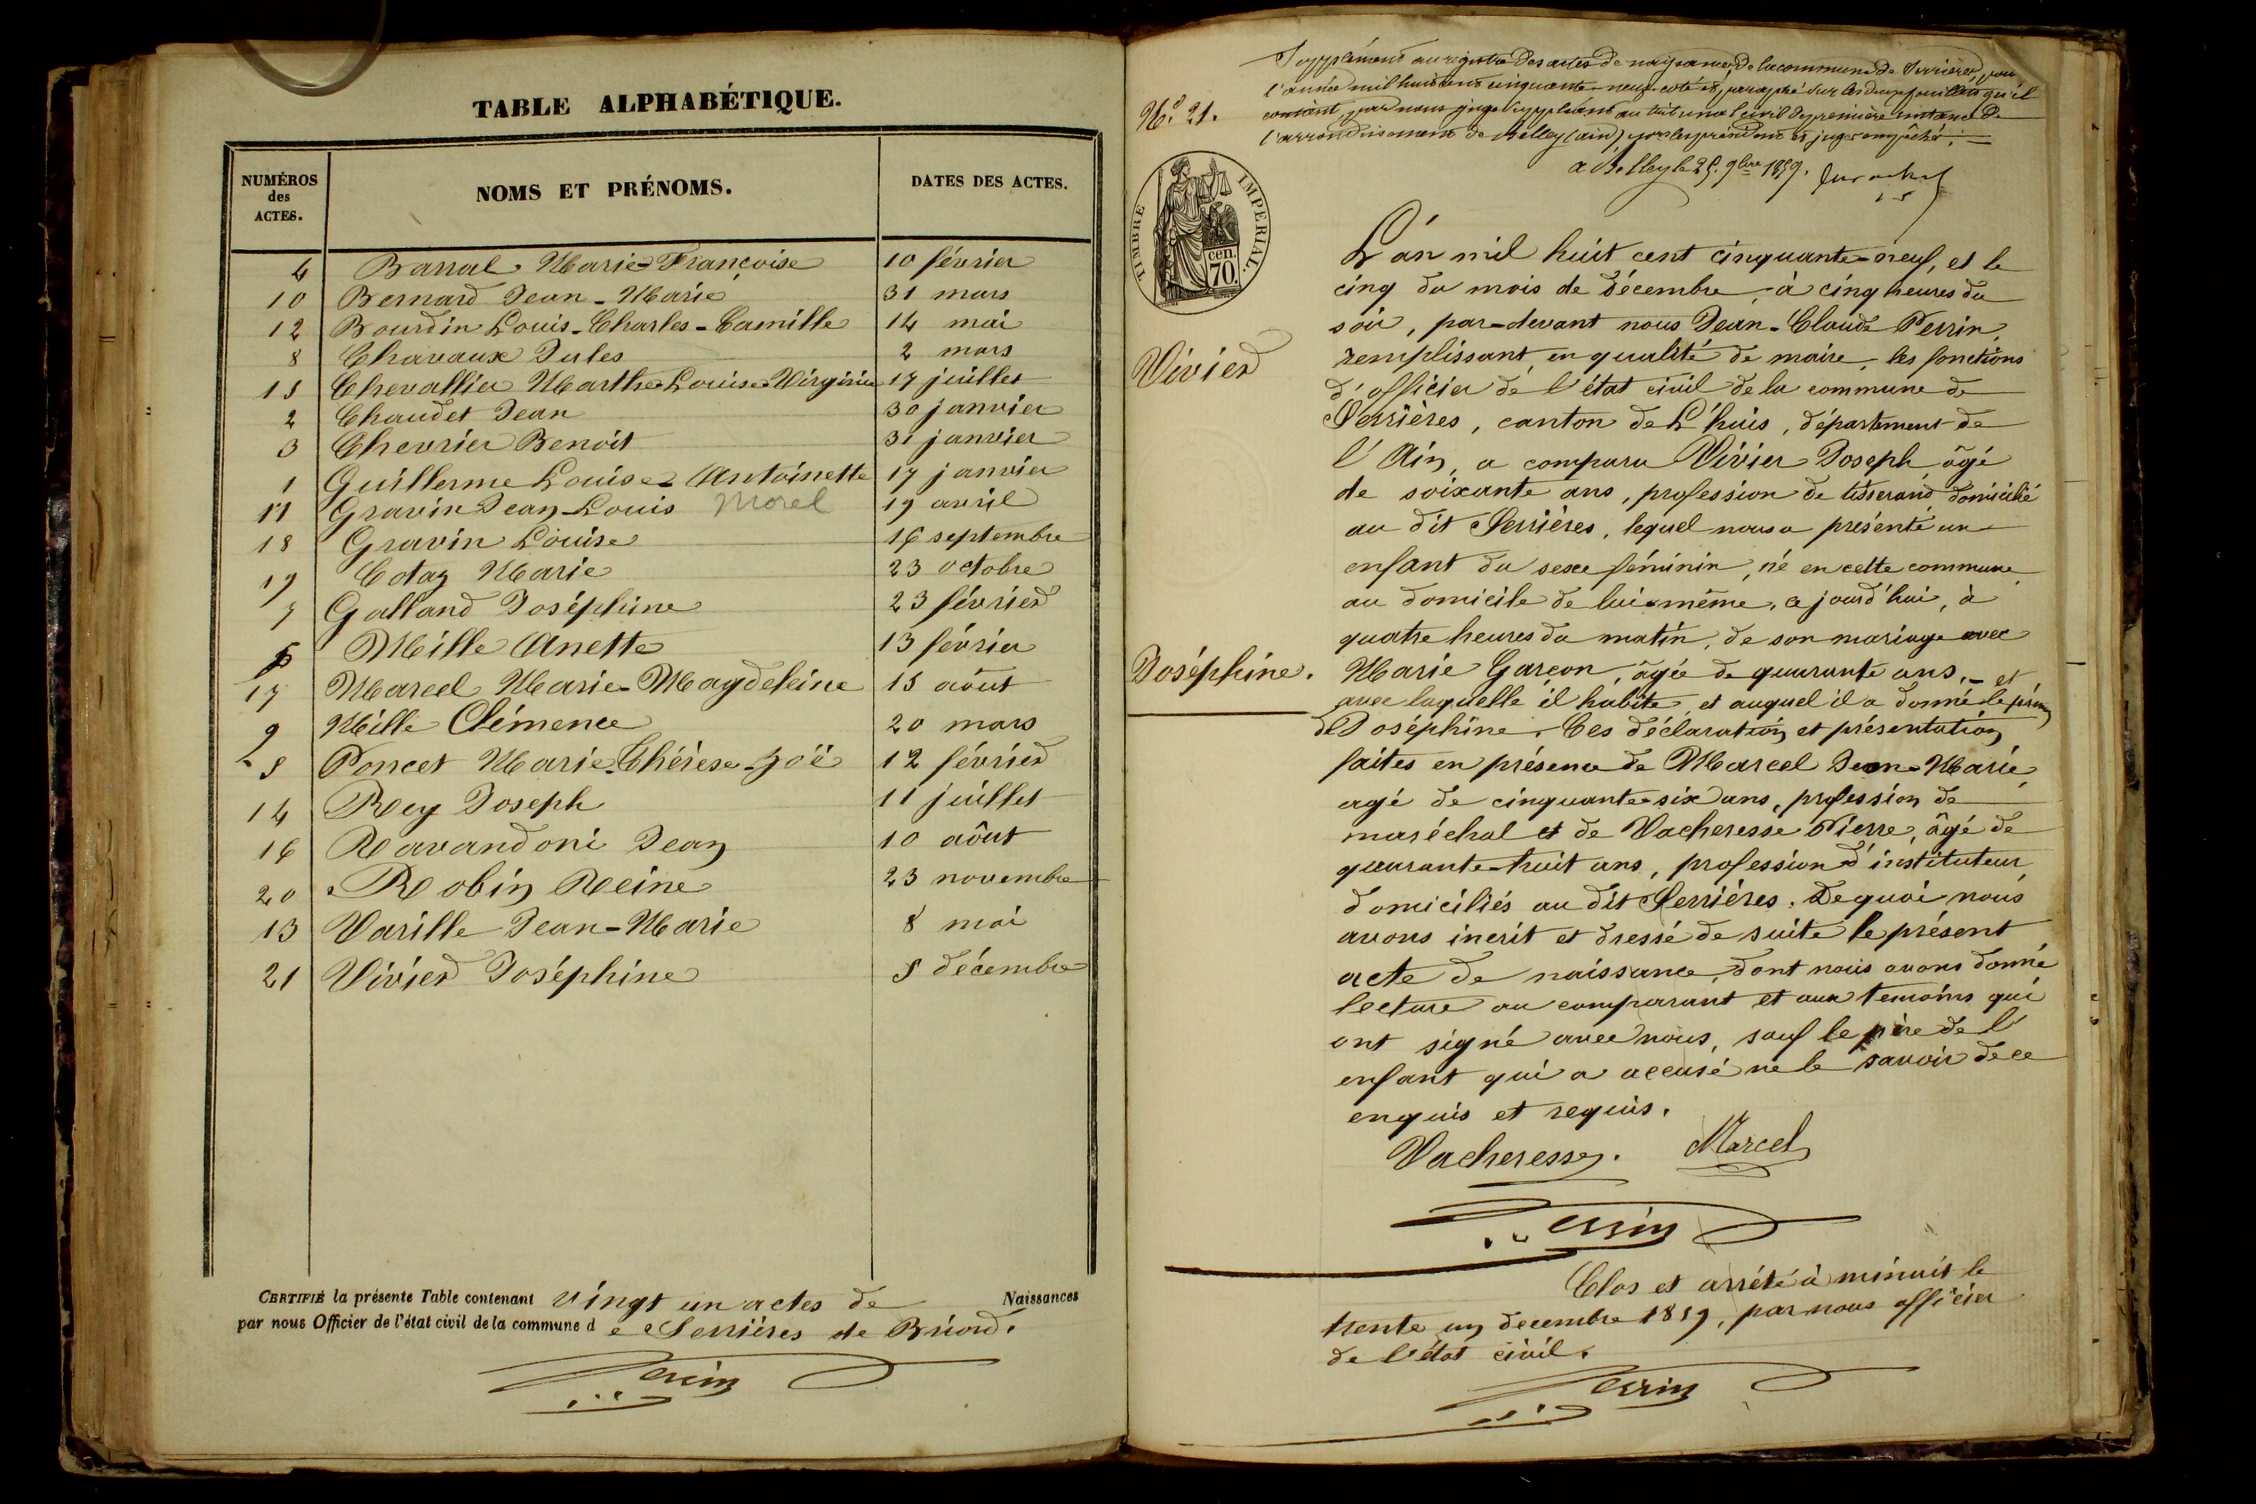 TABLE ALPHABÉTIQUE.
NUMÉROS des ACTES. NOMS ET PRÉNOMS. DATES DES ACTES.
4 Barral Marie-Françoise 10 février
10 Bernard Jean-Marie 31 mars
12 Bourdin Louis-Charles-Camille 14 mai
8 Chavaux Jules 2 mars
15 Chevallier Marthe-Louise-Virginie 17 juillet
2 Chaudet Jean 30 janvier
3 Chevrier Benoit 31 janvier
1 Guillerme Louise-Antoinette 17 janvier
11 Gravin Jean-Louis Morel 19 avril
18 Gravin Louise 16 septembre
19 Cotaz Marie 23 octobre
7 Galland Joséphine 23 février
6 Mille Anette 13 février
17 Marcel Marie-Magdeleine 15 août
9 Mille Clémence 20 mars
5 Poncet Marie-Thérèse-Zoë 12 février
14 Rey Joseph 11 juillet
16 Ravandoni Jean 10 août
20 Robin Reine 23 novembre
13 Varille Jean-Marie 8 mai
21 Vivier Joséphine 5 décembre
CERTIFIÉ la présente Table contenant vingt un actes de Naissances
par nous Officier de l'état civil de la commune de Serrières de Briord.
Perrin
Supplément au registre des actes de naissances de la commune de Serrières, pour
l'année mil huit cent cinquante-neuf coté et paraphé sur les deux feuillets qu'il
contient, par nous juge suppléant au tribunal civil de première instance de
l'arrondissement de Belley (ain), pour les président et juges empêchés.
a Belley le 25 9bre 1859.
No. 21.
TIMBRE IMPERIAL.
cen. 70.
Vivier
Joséphine.
L'an mil huit cent cinquante-neuf, et le
cinq du mois de décembre, à cinq heures du
soir, par-devant nous Jean-Claude Perrin,
remplissant, en qualité de maire, les fonctions
d'officier de l'état civil de la commune de
Serrières, canton de L'huis, département de
l'Ain, a comparu Vivier Joseph âgé
de soixante ans, profession de tisserand domicilié
au dit Serrières, lequel nous a présenté un
enfant du sexe féminin, né en cette commune
au domicile de lui-même, ce jourd'hui, à
quatre heures du matin, de son mariage avec
Marie Garçon, âgée de quarante ans, et
avec laquelle il habite et auquel il a donné le prénom
de Joséphine. Ces déclaration et présentation
faites en présence de Marcel Jean-Marie,
agé de cinquante-six ans, profession de
maréchal et de Vacheresse Pierre, âgé de
quarante-huit ans, profession d'instituteur
domiciliés au dit Serrières. De quoi nous
avons incrit et dressé de suite le présent
acte de naissance, dont nous avons donné
lecture au comparant et aux temoins qui
ont signé avec nous, sauf le père de l'
enfant qui a accusé ne le savoir de ce
enquis et requis.
Vacheresse. Marcel
Perrin
Clos et arrêté à minuit le
trente un decembre 1859, par nous officier
de l'état civil.
Perrin